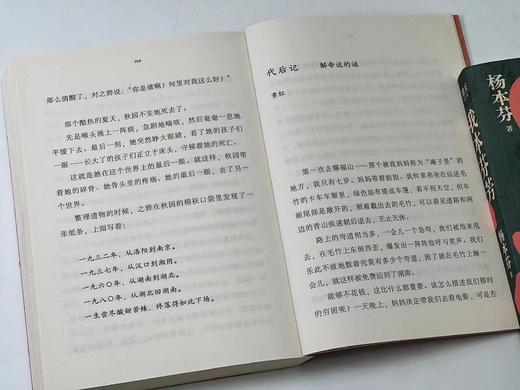 那么清醒了，对之骅说：“你是谁啊？何里对我这么好？”
那个酷热的夏天，秋园不安地死去了。
先是喉头涌上一阵痰，急剧地喘咳，然后奄奄一息地
平缓下去。最后一刻，她突然睁大眼睛，看了她的孩子们
一眼——长大了的孩子们正立于床头，守候着她的死去。
就这样，她在这个世界上的最后一眼，
世界。
整理遗物的时候，之骅在秋园的棉袄口袋里发现了一
张纸条，上面写着：
一九三二年，从洛阳到南京。
一九三七年，从汉口到湘阴。
一九六〇年，从湖南到湖北。
一九八〇年，从湖北回湖南。
一生尝尽酸甜苦辣，终落得如此下场。
代后记 解命运的谜
章红
第一次去赐福山——那个被我妈妈称为“南子里”的
地方，我只有七岁。妈妈带着外祖母、我和弟弟坐在运毛
竹的卡车车厢里，绿色油布搭成车篷，看不到天空，但车
厢尾部是敞开的，照着戳出去的毛竹，可以看见道路和两
边的青山疾速朝后退去，无止无休。
路上的弯道相当多，一会儿一个急弯，我们被甩来甩
去，在毛竹上东倒西歪，爆发出一阵阵惊呼与笑声。我们
乐此不疲地数着究竟有多少个弯道，困了就在毛竹上睡一
会儿，就这样被免费运到了湖南。
能够不花钱，这比什么都重要。该怎么描述我们那时
的穷困呢？一天晚上，妈妈决定带我们去看电影，可是左
杨本芬
著
我本芬芳
杨本芬